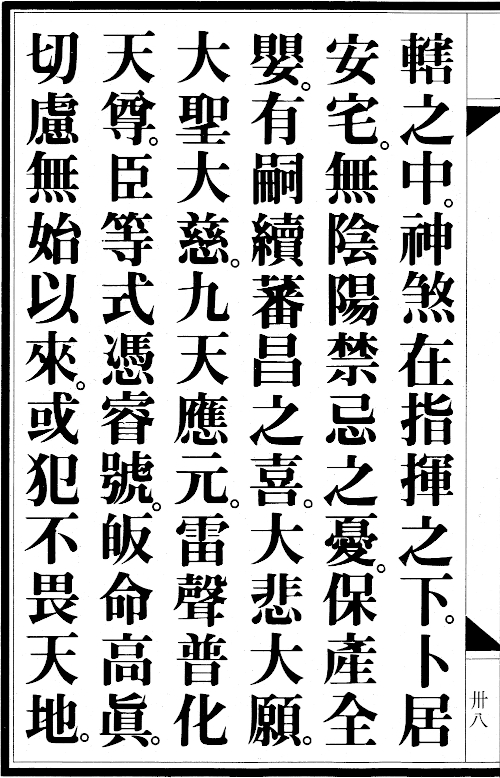 轄之中。神煞在指揮之下。卜居
安宅。無陰陽禁忌之憂。保產全
嬰。有嗣續蕃昌之喜。大悲大願。
大聖大慈。九天應元。雷聲普化
天尊。臣等式憑睿號。皈命高眞。
切慮無始以來。或犯不畏天地。
卅八